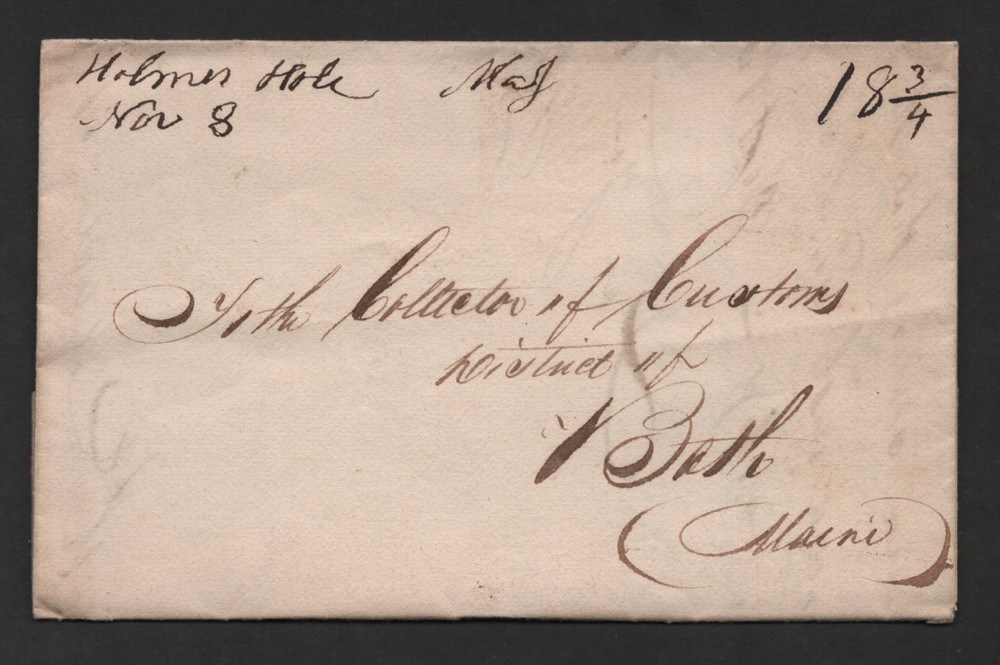 Holmes Hole Mas 18 3/4
Nov 8
To the Collector of Customs
District of
Bath
(Maine)